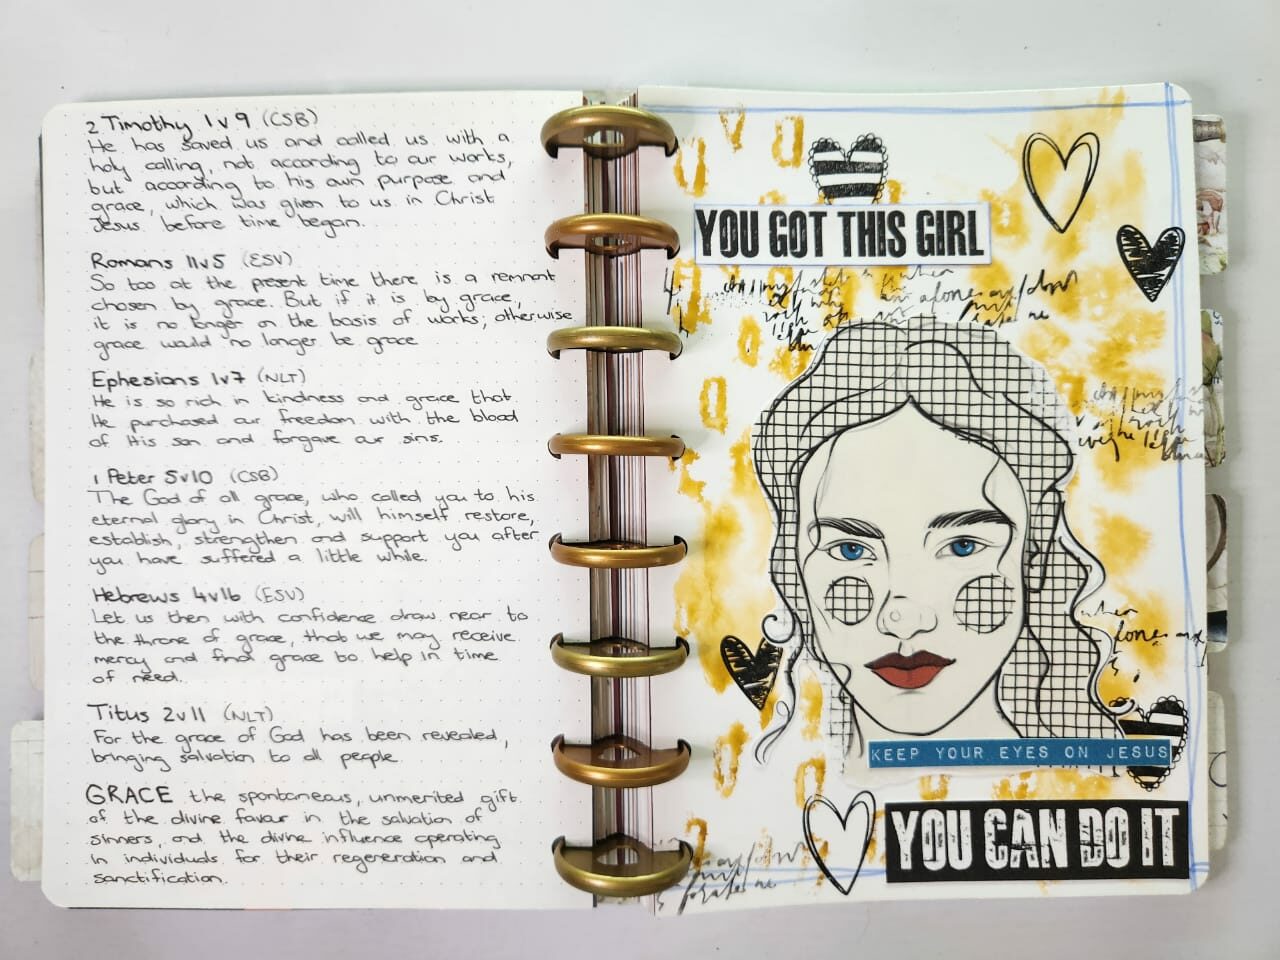 2 Timothy 1v9 (CSB)
He has saved us and called us with a
holy calling, not according to our works,
but according to his own purpose and
grace, which was given to us in Christ
Jesus before time began.
Romans 11v5 (ESV)
So too at the present time there is a remnant
chosen by grace. But if it is by grace,
it is no longer on the basis of works; otherwise
grace would no longer be grace
Ephesians 1v7 (NLT)
He is so rich in kindness and grace that
He purchased our freedom with the blood
of His son and forgave our sins.
1 Peter 5v10 (CSB)
The God of all grace, who called you to his
eternal glory in Christ, will himself restore,
establish, strengthen and support you after
you have suffered a little while.
Hebrews 4v16 (ESV)
Let us then with confidence draw near to
the throne of grace, that we may receive
mercy and find grace to help in time
of need.
Titus 2v11 (NLT)
For the grace of God has been revealed,
bringing salvation to all people
GRACE the spontaneous, unmerited gift
of the divine favour in the salvation of
sinners, and the divine influence operating
in individuals for their regeneration and
sanctification.
YOU GOT THIS GIRL
KEEP YOUR EYES ON JESUS
YOU CAN DO IT